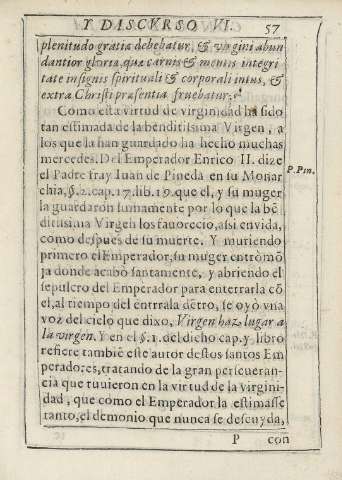 Y DISCVRSO VI. 57
plenitudo gratiæ debebatur, & virgini abun
dantior gloria, quæ carnis & mentis integri
tate insignis spirituali & corporali intus, &
extra Christi præsentia fruebatur:
Como esta virtud de virginidad ha sido
tan estimada de la benditissima Virgen, a
los que la han guardado ha hecho muchas
mercedes. Del Emperador Enrico II. dize
el Padre fray Iuan de Pineda en su Monar
P. Pin.
chia, §. 2. cap. 17. lib. 19. que el, y su muger
la guardaron sumamente por lo que la bẽ
ditissima Virgen los fauorecio, assi en vida,
como despues de su muerte. Y muriendo
primero el Emperador, su muger entrò mõ
ja donde acabò santamente, y abriendo el
sepulcro del Emperador para enterrarla cõ
el, al tiempo del entrrala dẽtro, se oyò vna
voz del cielo que dixo, Virgen haz lugar a
la virgen. Y en el §. 1. del dicho cap. y libro
refiere tambiẽ este autor destos santos Em
peradores, tratando de la gran perseueran-
cia que tuuieron en la virtud de la virgini-
dad, que como el Emperador la estimasse
tanto, el demonio que nunca se descuyda,
P con